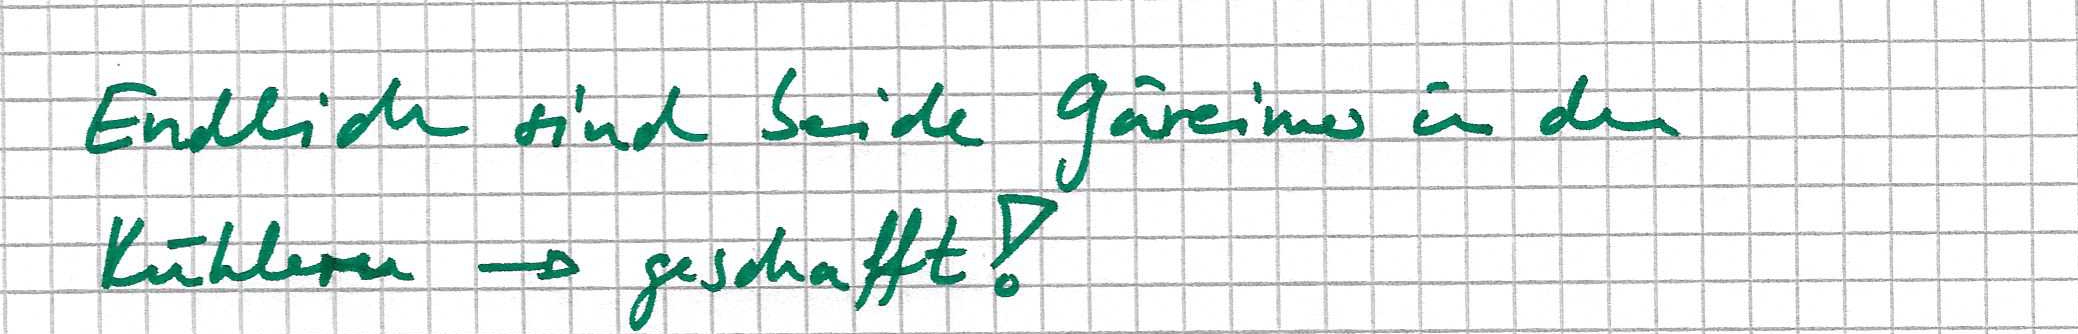 Endlich sind beide Gäreimer in den
Kühlern → geschafft!